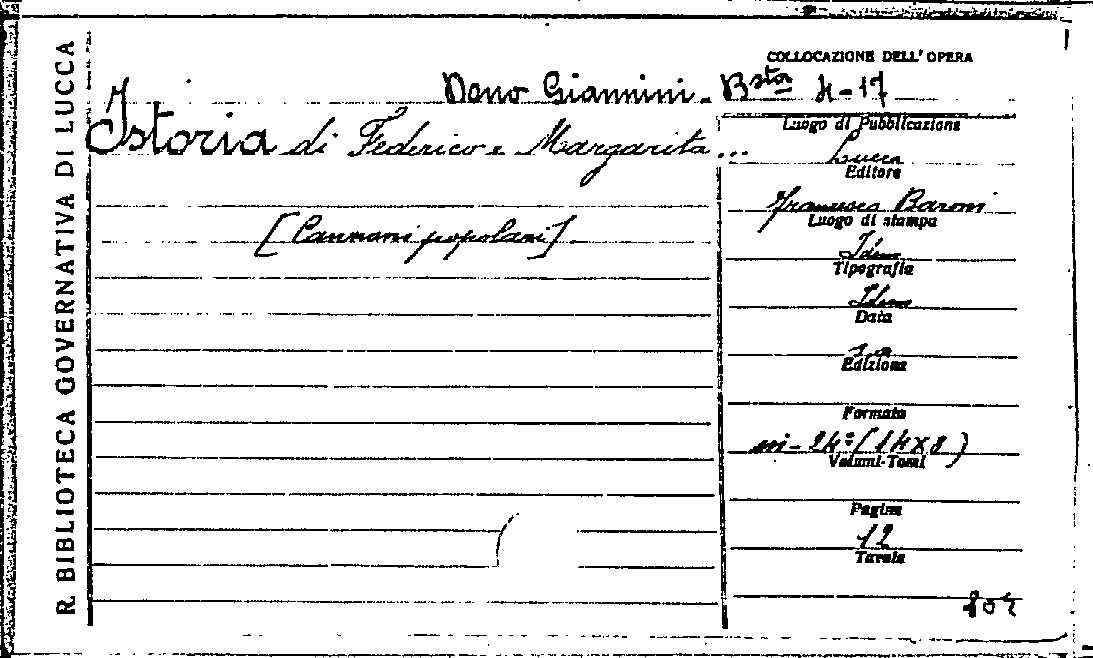 R. BIBLIOTECA GOVERNATIVA DI LUCCA
COLLOCAZIONE DELL' OPERA
Dono Giannini. Bsta 4-17
Istoria di Federico e Margarita ...
[Canzoni popolari]
Luogo di Pubblicazione
Lucca
Editore
Francesco Baroni
Luogo di stampa
Idem
Tipografia
Idem
Data
s. a.
Edizione
Formato
in-24º (14x8)
Volumi-Tomi
Pagine
12
Tavole